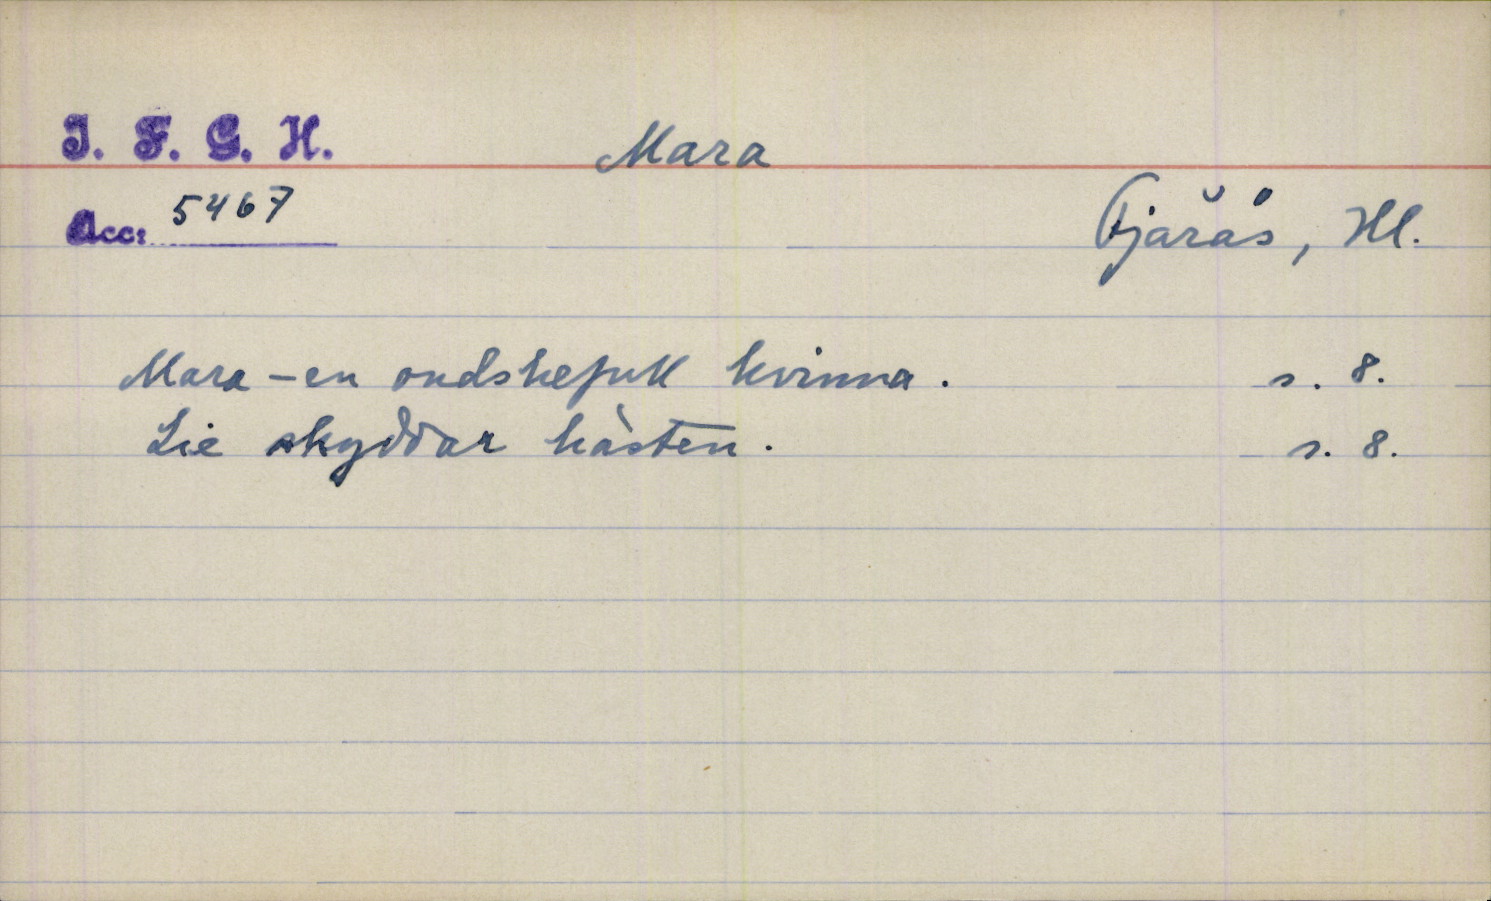 I. F. G. H.
Mara
Acc: 5467
Fjärås, Hl.
Mara - en ondskefull kvinna. s. 8.
Lie skyddar hästen. s. 8.